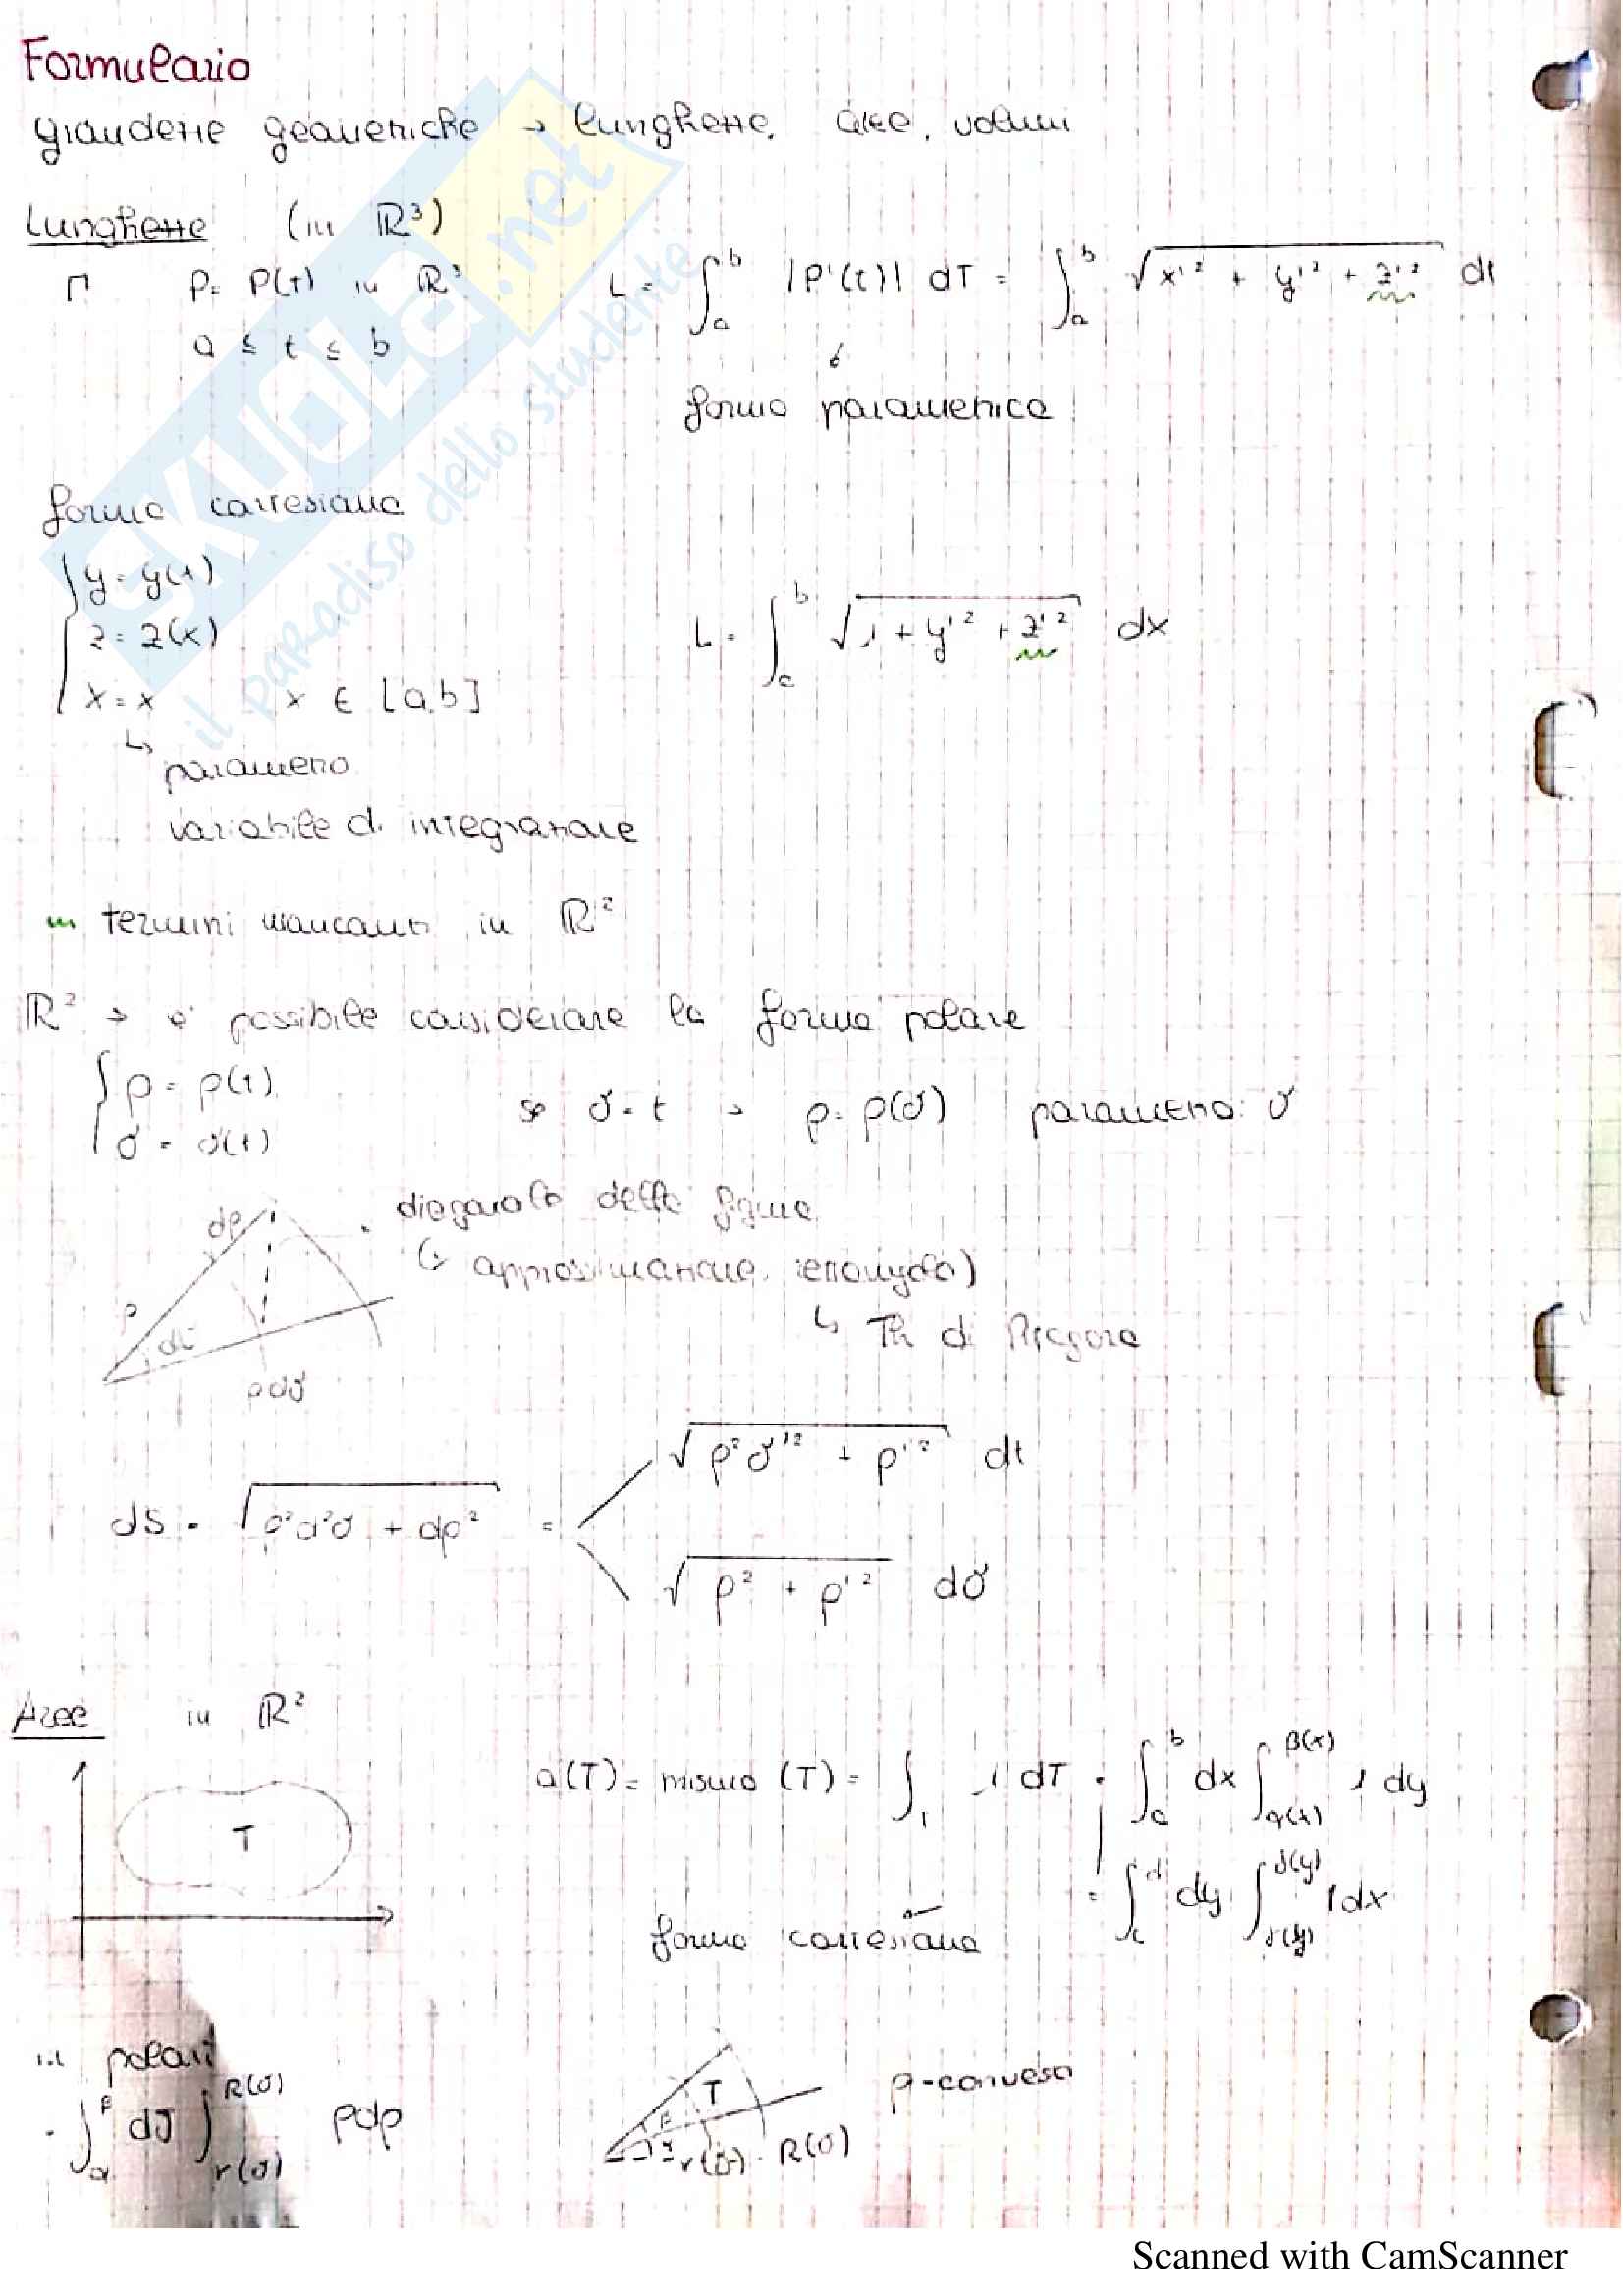 Formulario
grandezze geometriche → lunghezze, aree, volumi
Lunghezze (in ℝ³)
Γ P = P(t) in ℝ³ L = ∫_a^b |P'(t)| dT = ∫_a^b √(x'² + y'² + z'²) dt
a ≤ t ≤ b
forma parametrica
forma cartesiana
{ y = y(t)
z = z(x) L = ∫_a^b √(1 + y'² + z'²) dx
x = x x ∈ [a,b]
↳ parametro
variabile di integrazione
termini mancanti in ℝ²
ℝ² → è possibile considerare la forma polare
{ ρ = ρ(t)
ϑ = ϑ(t) se ϑ = t → ρ = ρ(ϑ) parametro: ϑ
dρ diagonale della figura
(→ approssimazione, rettangolo)
ρ ↳ Th di Pitagora
ρdϑ
√(ρ²ϑ'² + ρ'²) dt
dS = √(ρ²d²ϑ + dρ²) =
√(ρ² + ρ'²) dϑ
Aree in ℝ²
a(T) = misura (T) = ∫_T 1 dT = ∫_a^b dx ∫_α(x)^β(x) 1 dy
T
= ∫_c^d dy ∫_γ(y)^δ(y) 1 dx
forma cartesiana
in polari
= ∫_α^β dϑ ∫_r(ϑ)^R(ϑ) ρdρ
T r(ϑ) R(ϑ) ρ-convesso
Scanned with CamScanner
SKUOLA.net
il paradiso dello studente